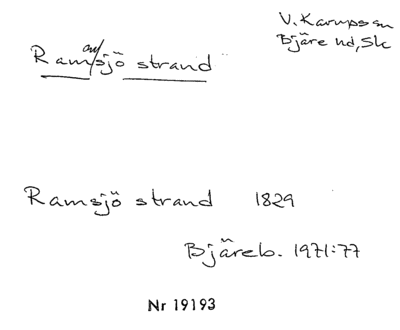 V. Karupssn
Bjäre hd, Sk
Ramsjö strand
Ramsjö strand 1829
Bjäreb. 1971:77
Nr 19193